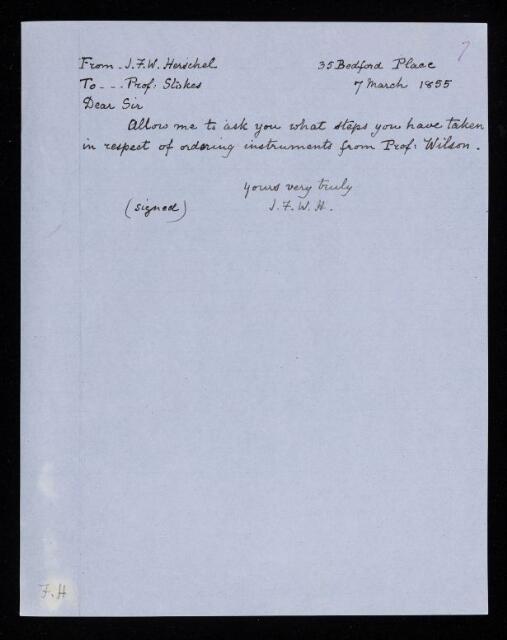 7
From - J.F.W. Herschel 35 Bedford Place
To - - - Prof: Stokes 7 March 1855
Dear Sir
Allow me to ask you what steps you have taken
in respect of ordering instruments from Prof: Wilson.
Yours very truly
(signed) J.F.W.H.
F.H